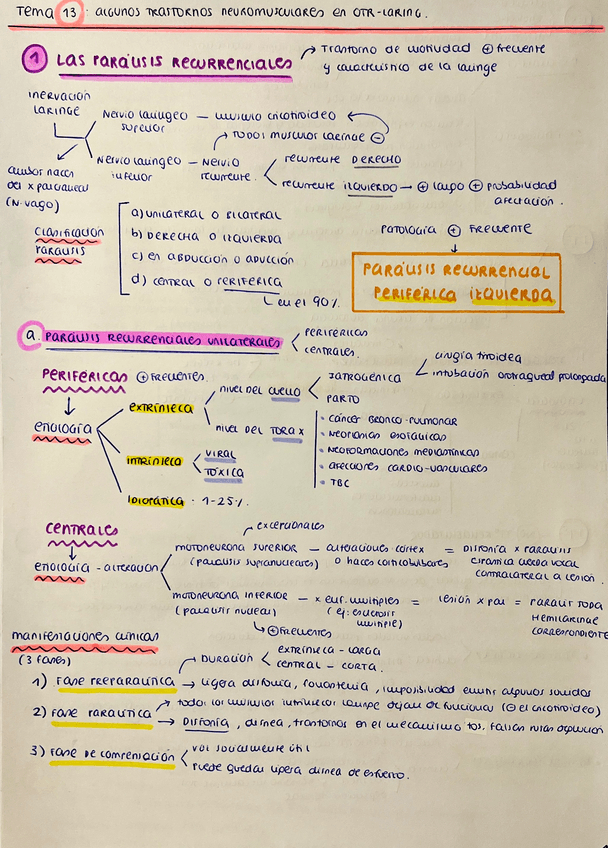 Tema 13: ALGUNOS TRASTORNOS NEUROMUSCULARES EN OTR-LARING.
1 LAS PARÁLISIS RECURRENCIALES → Trastorno de motilidad ⊕ frecuente
y característico de la laringe
inervación
LARINGE
Nervio laríngeo – músculo cricotiroideo
superior
→ TODOS muscular laringe ⊖
Nervio laríngeo – Nervio
inferior recurrente
recurrente DERECHO
recurrente IZQUIERDO → ⊕ largo ⊕ probabilidad
afectación.
ambos nacen
del x par craneal
(N. vago)
Clasificación
PARÁLISIS
a) UNILATERAL O BILATERAL
b) DERECHA O IZQUIERDA
c) en ABDUCCIÓN O ADUCCIÓN
d) CENTRAL O PERIFÉRICA
en el 90%.
PATOLOGÍA ⊕ Frecuente
PARÁLISIS RECURRENCIAL
PERIFÉRICA IZQUIERDA
a. PARÁLISIS RECURRENCIALES UNILATERALES
PERIFÉRICAS
CENTRALES.
PERIFÉRICAS ⊕ FRECUENTES.
etiología
EXTRÍNSECA
nivel del CUELLO
IATROGÉNICA
cirugía tiroidea
intubación orotraqueal prolongada
PARTO
nivel del TORAX
• CÁNCER BRONCO-PULMONAR
• NEOPLASIAS ESOFÁGICAS
• NEOFORMACIONES MEDIASTÍNICAS
• AFECCIONES CARDIO-VASCULARES
• TBC
INTRÍNSECA
VIRAL
TÓXICA
IDIOPÁTICA: 1-25%.
CENTRALES
etiología - alteración
→ excepcionales
MOTONEURONA SUPERIOR – alteraciones córtex = DISFONÍA x PARÁLISIS
(parálisis supranucleares) o haces corticobulbares
cuerda vocal
contralateral a lesión.
MOTONEURONA INFERIOR – x enf. múltiples = lesión x par = PARÁLISIS TODA
(parálisis nuclear) (ej: esclerosis HEMILARINGE
múltiple) CORRESPONDIENTE
→ ⊕ Frecuentes
manifestaciones clínicas
(3 fases)
→ DURACIÓN
EXTRÍNSECA - LARGA
CENTRAL - CORTA.
1) FASE PREPARALÍTICA → ligera disfonía, fonastenia, imposibilidad emitir algunos sonidos
→ todos los músculos intrínsecos laringe dejan de funcionar (⊖ el cricotiroideo)
2) FASE PARALÍTICA → DISFONÍA, disnea, trastornos en el mecanismo tos. Falsas rutas deglución
3) FASE DE COMPENSACIÓN
voz socialmente útil
puede quedar ligera disnea de esfuerzo.